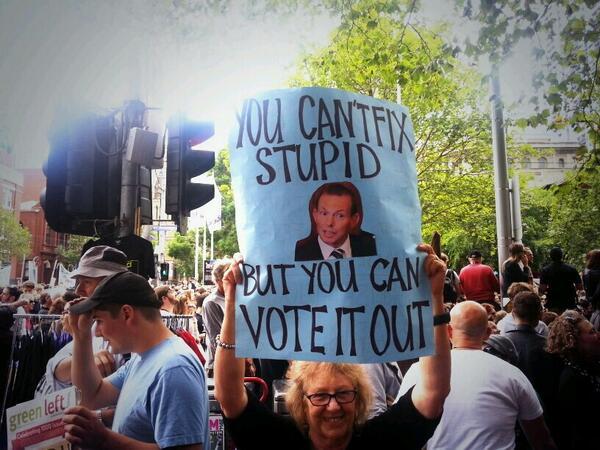 YOU CAN'T FIX
STUPID
BUT YOU CAN
VOTE IT OUT
green left